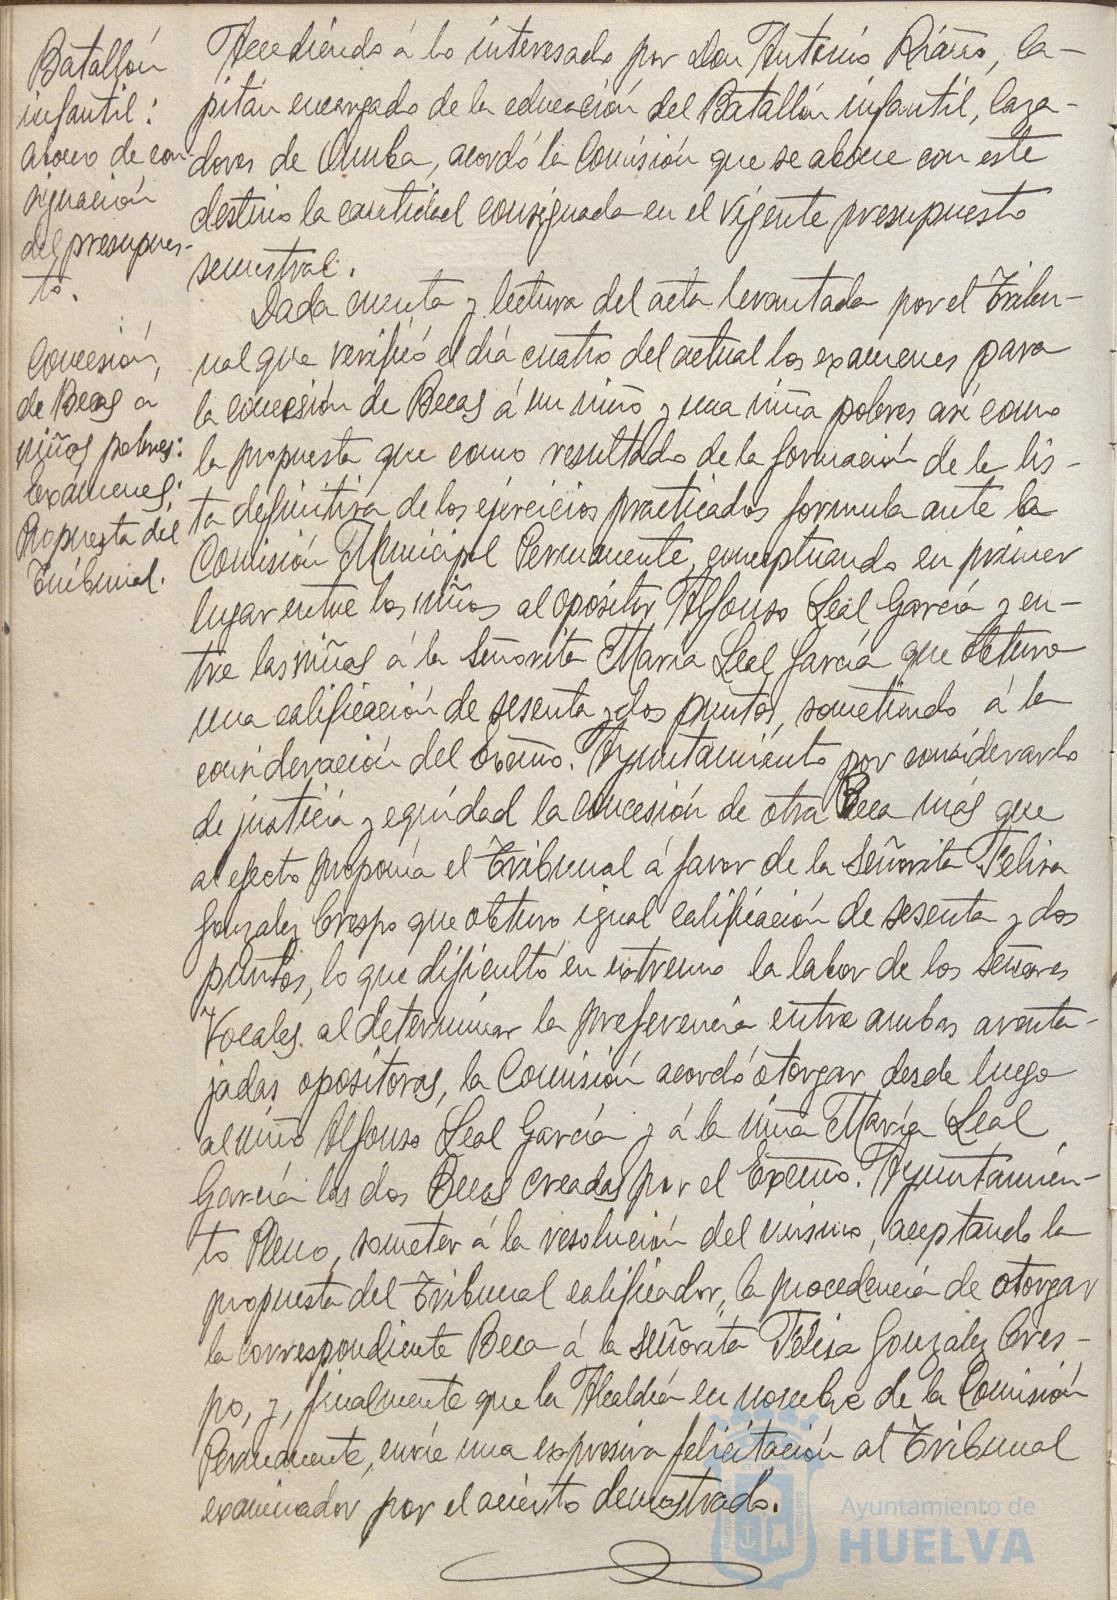 Batallón
infantil:
abono de con-
signación
del presupues-
to.
Accediendo á lo interesado por Don Antonio Riaño, Ca-
pitán encargado de la educación del Batallón infantil, Caza-
dores de Onuba, acordó la Comisión que se abone con este
destino la cantidad consignada en el vigente presupuesto
semestral.
Concesión
de Becas á
niños pobres:
Exámenes:
Propuesta del
Tribunal.
Dada cuenta y lectura del acta levantada por el Tribu-
nal que verificó el día cuatro del actual los exámenes para
la concesión de Becas á un niño y una niña pobres así como
la propuesta que como resultado de la formación de la lis-
ta definitiva de los ejercicios practicados formula ante la
Comisión Municipal Permanente, conceptuando en primer
lugar entre los niños al opositor Alfonso Leal García y en-
tre las niñas á la Señorita María Leal García que obtuvo
una calificación de sesenta y dos puntos, sometiendo á la
consideración del Excmo. Ayuntamiento por considerarlo
de justicia y equidad la concesión de otra Beca más que
al efecto proponía el Tribunal á favor de la Señorita Felisa
Gonzalez Crespo que obtuvo igual calificación de sesenta y dos
puntos, lo que dificultó en extremo la labor de los Señores
Vocales al determinar la preferencia entre ambas aventa-
jadas opositoras, la Comisión acordó otorgar desde luego
al niño Alfonso Leal García y á la niña María Leal
García las dos Becas creadas por el Excmo. Ayuntamien-
to Pleno, someter á la resolución del mismo, aceptando la
propuesta del Tribunal calificador, la procedencia de otorgar
la correspondiente Beca á la Señorita Felisa Gonzalez Cres-
po, y, finalmente que la Alcaldía en nombre de la Comisión
Permanente, envíe una expresiva felicitación al Tribunal
examinador por el acierto demostrado.
Ayuntamiento de
HUELVA